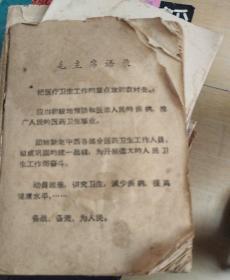 毛主席语录
把医疗卫生工作的重点放到农村去。
应当积极地预防和医治人民的疾病，推
广人民的医药卫生事业。
团结新老中西各部分医药卫生工作人员，
组成巩固的统一战线，为开展伟大的人民卫
生工作而奋斗。
动员起来，讲究卫生，减少疾病，提高
健康水平，……
备战、备荒、为人民。